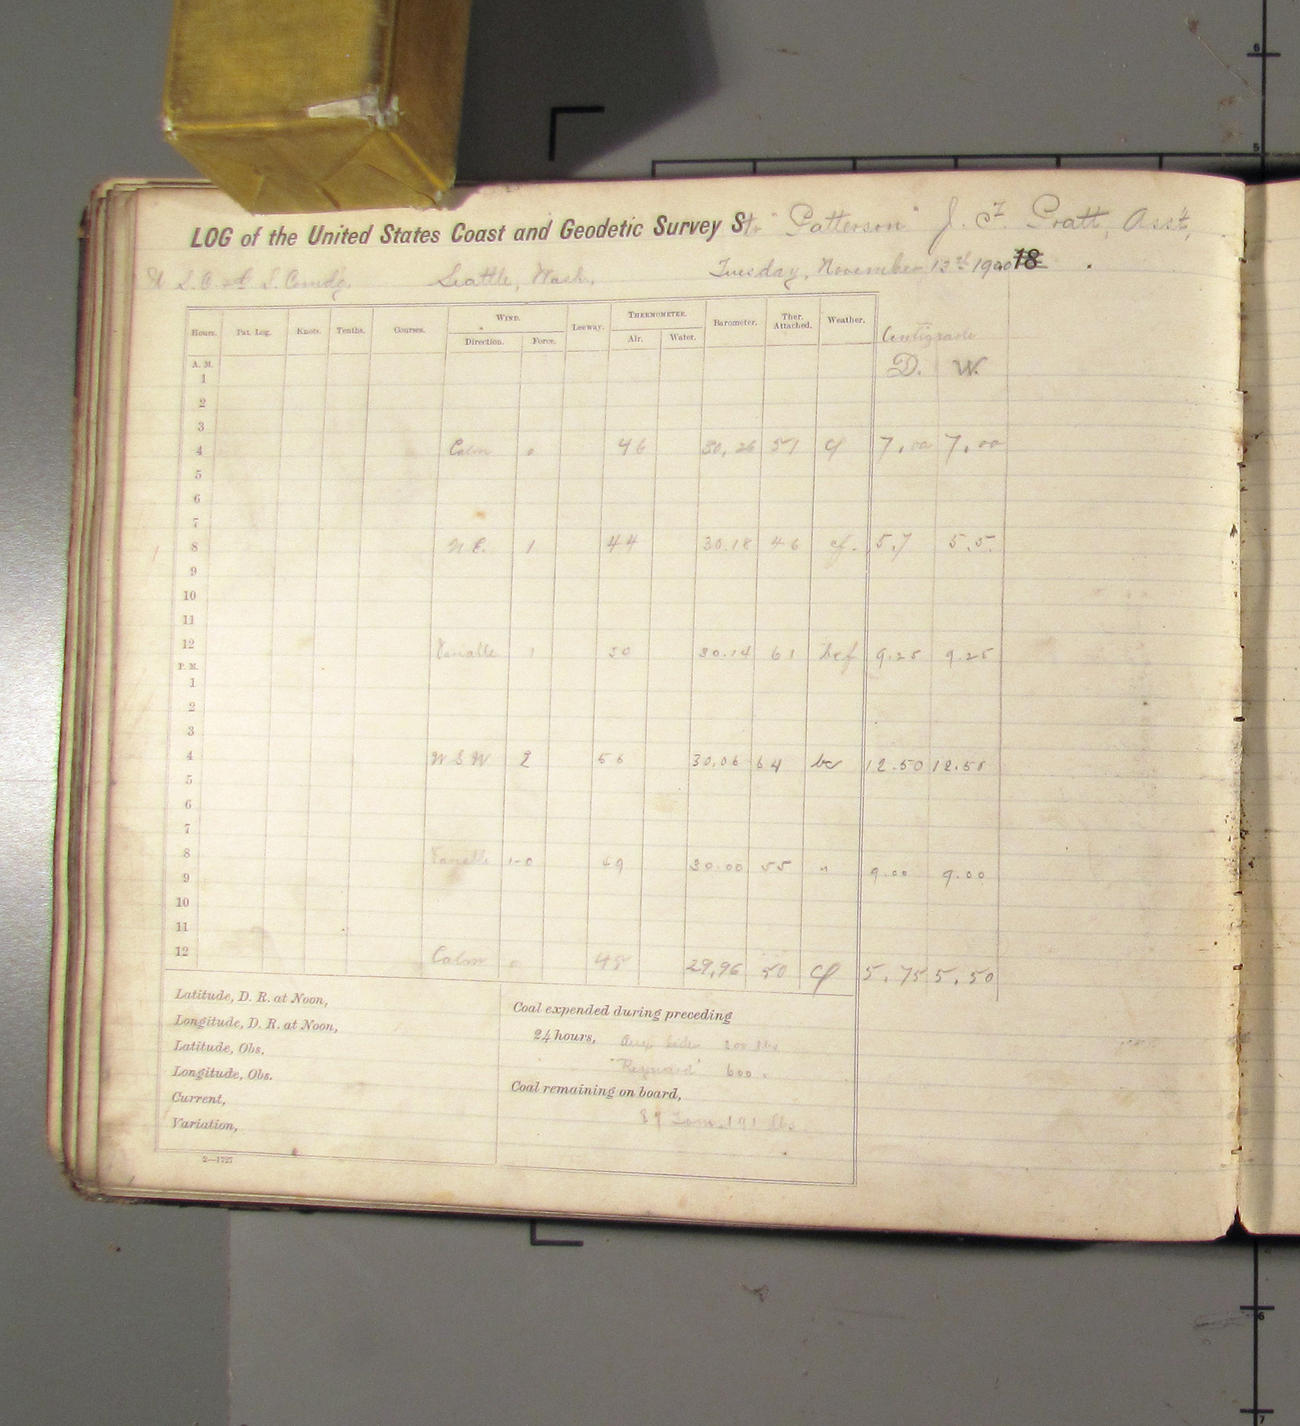 LOG of the United States Coast and Geodetic Survey Str "Patterson" J. F. Pratt, Asst,
U S. C. & G S. Comdg. Seattle, Wash. Tuesday, November 13th 1900 18
Hours. Pat. Log. Knots. Tenths. Courses. WIND. Leeway. THERMOMETER. Barometer. Ther. Attached. Weather. Centigrade
Direction. Force. Air. Water. D. W.
A. M.
1
2
3
4 Calm 0 46 30,26 51 cf 7.00 7.00
5
6
7
8 N E. 1 44 30.18 46 cf. 5.7 5.5
9
10
11
12 Variable 1 50 30.14 61 bcf 9.25 9.25
P. M.
1
2
3
4 W S W 2 56 30.06 64 bc 12.50 12.50
5
6
7
8 Variable 1-0 49 30.00 55 " 9.00 9.00
9
10
11
12 Calm 0 45 29,96 50 cf 5.75 5.50
Latitude, D. R. at Noon,
Longitude, D. R. at Noon,
Latitude, Obs.
Longitude, Obs.
Current,
Variation,
Coal expended during preceding
24 hours, 200 lbs
600
Coal remaining on board,
89 Tons 191 lbs.
2—1727
6
5
6
7